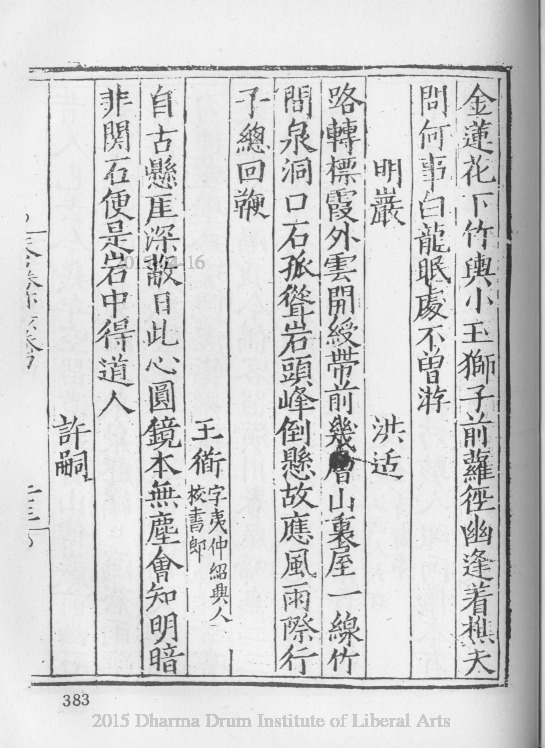 金蓮花下竹輿小玉獅子前蘿徑幽逢着樵夫
問何事白龍眠處不曾游
明巖
洪适
路轉標霞外雲開綬帶前幾層山裏屋一線竹
間泉洞口石孤聳岩頭峰倒懸故應風雨際行
子總回鞭
王衜字夷仲紹興人
校書郎
自古懸厓深敞日此心圓鏡本無塵會知明暗
非関石便是岩中得道人
許嗣
383
2015 Dharma Drum Institute of Liberal Arts